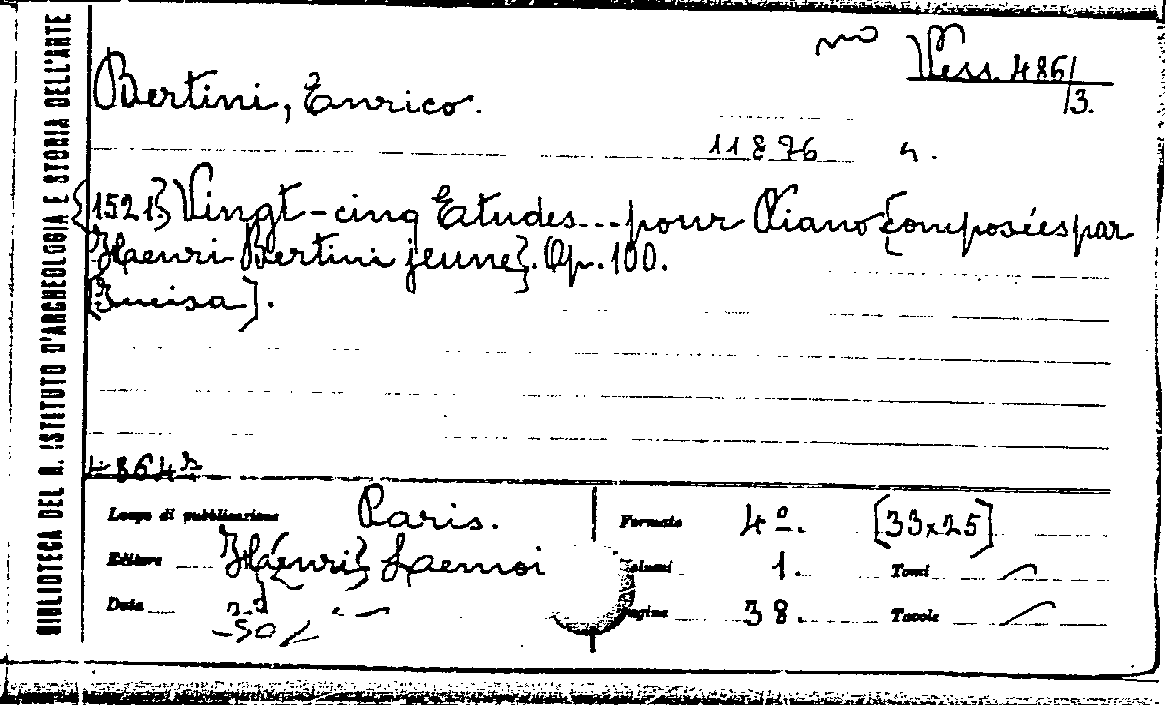 BIBLIOTECA DEL R. ISTITUTO D'ARCHEOLOGIA E STORIA DELL'ARTE
Vess. 486/
13.
Bertini, Enrico.
11876
{1521.} Vingt-cinq Etudes... pour Piano {composées par
Henri Bertini jeune}. Op. 100.
[Incisa].
Luogo di pubblicazione Paris.
Formato 4º. [33x25]
Editore H{enri} Lemoi
Volumi 1. Tomi —
Data
Pagine 38. Tavole —